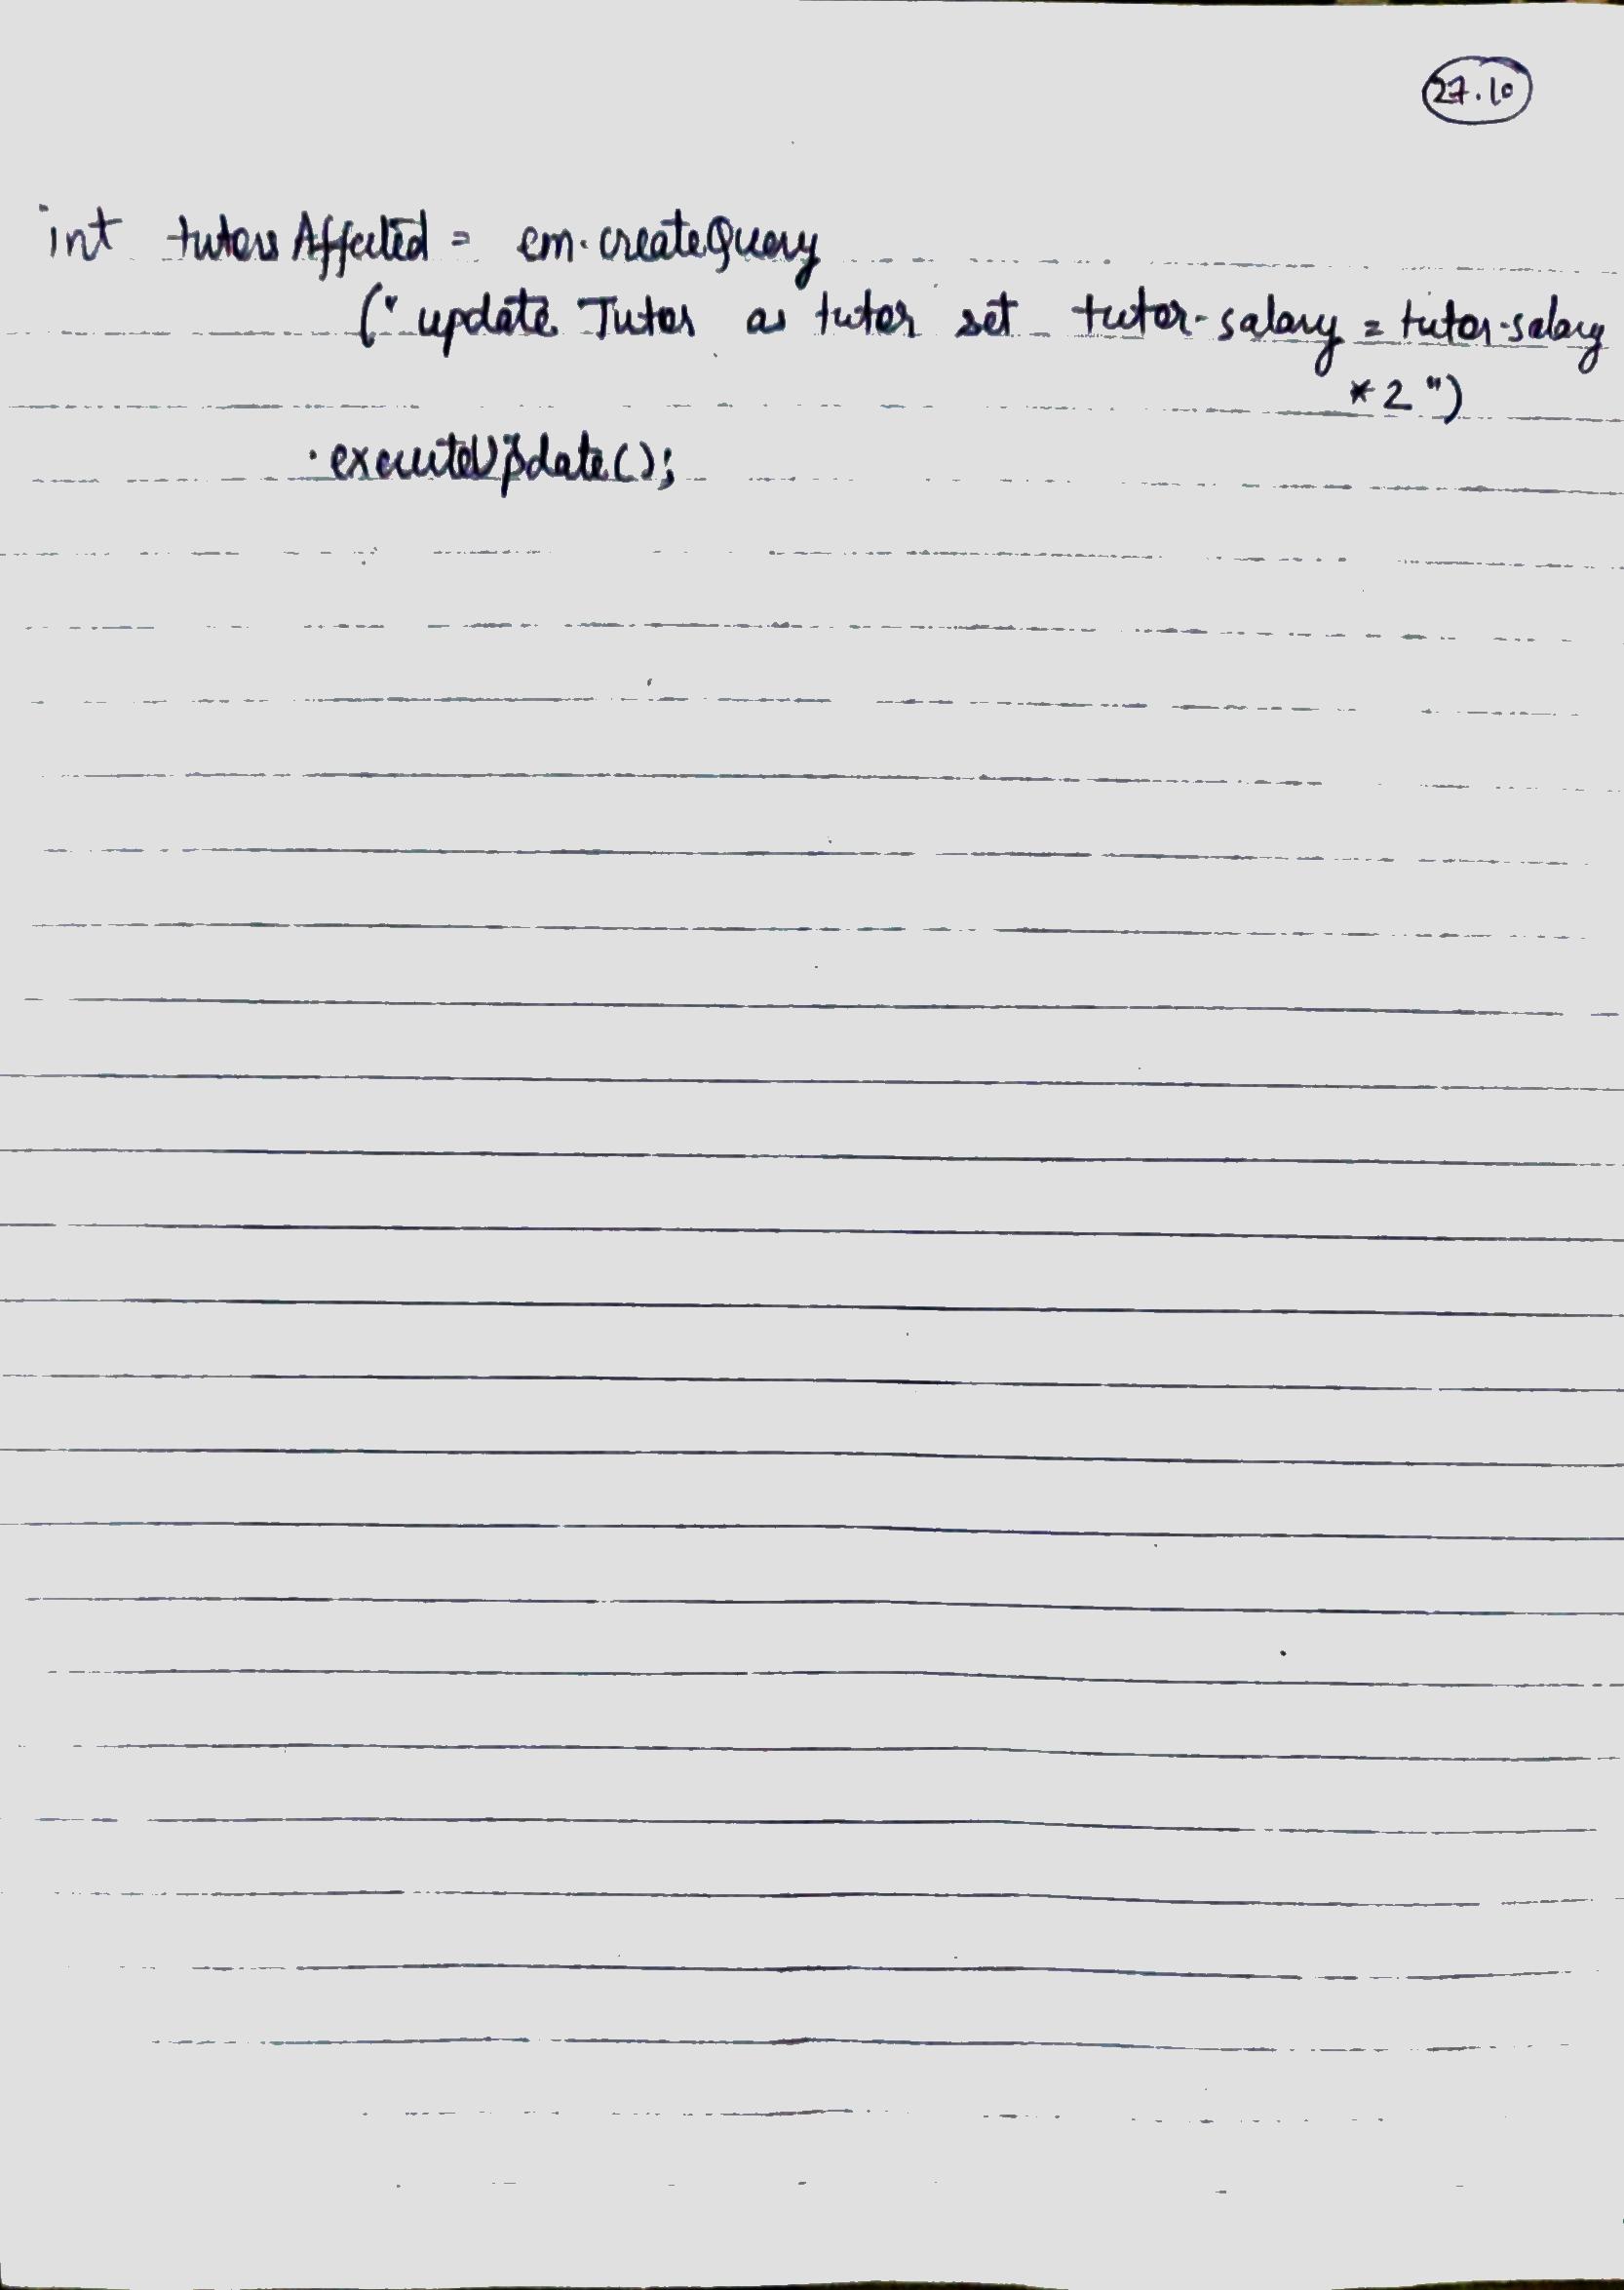 27.10
int tutorsAffected = em.createQuery
("update Tutor as tutor set tutor.salary = tutor.salary
*2")
.executeUpdate();